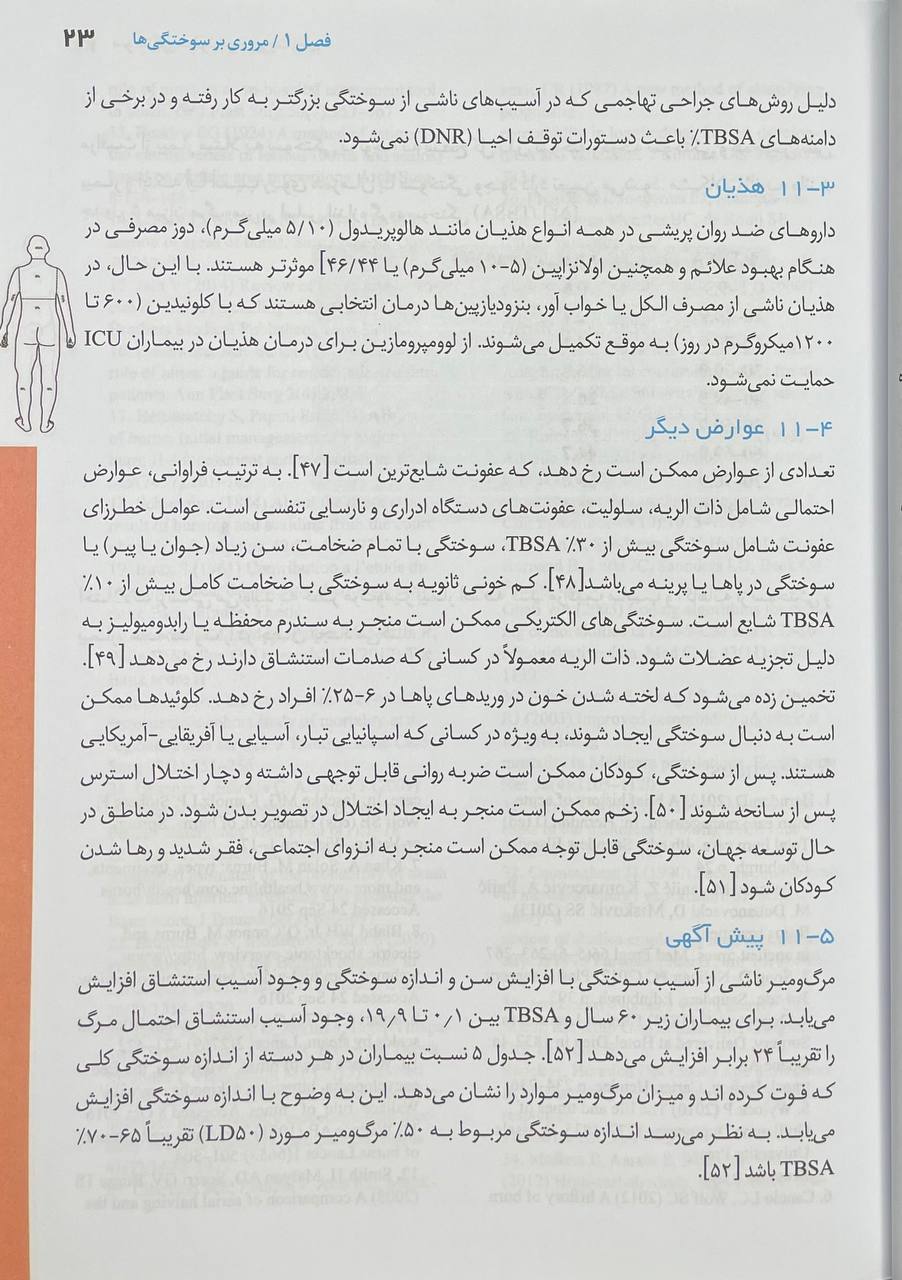 فصل ۱ / مروری بر سوختگی‌ها ۲۳
دلیل روش‌های جراحی تهاجمی که در آسیب‌های ناشی از سوختگی بزرگتر به کار رفته و در برخی از
دامنه‌های TBSA٪ باعث دستورات توقف احیا (DNR) نمی‌شود.
۱۱-۳ هذیان
داروهای ضد روان پریشی در همه انواع هذیان مانند هالوپریدول (۵/۱۰ میلی‌گرم)، دوز مصرفی در
هنگام بهبود علائم و همچنین اولانزاپین (۵-۱۰ میلی‌گرم) یا ۴۶/۴۴] موثرتر هستند. با این حال، در
هذیان ناشی از مصرف الکل یا خواب آور، بنزودیازپین‌ها درمان انتخابی هستند که با کلونیدین (۶۰۰ تا
۱۲۰۰میکروگرم در روز) به موقع تکمیل می‌شوند. از لوومپرومازین برای درمان هذیان در بیماران ICU
حمایت نمی‌شود.
۱۱-۴ عوارض دیگر
تعدادی از عوارض ممکن است رخ دهد، که عفونت شایع‌ترین است [۴۷]. به ترتیب فراوانی، عوارض
احتمالی شامل ذات الریه، سلولیت، عفونت‌های دستگاه ادراری و نارسایی تنفسی است. عوامل خطرزای
عفونت شامل سوختگی بیش از ۳۰٪ TBSA، سوختگی با تمام ضخامت، سن زیاد (جوان یا پیر) یا
سوختگی در پاها یا پرینه می‌باشد[۴۸]. کم خونی ثانویه به سوختگی با ضخامت کامل بیش از ۱۰٪
TBSA شایع است. سوختگی‌های الکتریکی ممکن است منجر به سندرم محفظه یا رابدومیولیز به
دلیل تجزیه عضلات شود. ذات الریه معمولاً در کسانی که صدمات استنشاق دارند رخ می‌دهد [۴۹].
تخمین زده می‌شود که لخته شدن خون در وریدهای پاها در ۶-۲۵٪ افراد رخ دهد. کلوئیدها ممکن
است به دنبال سوختگی ایجاد شوند، به ویژه در کسانی که اسپانیایی تبار، آسیایی یا آفریقایی-آمریکایی
هستند. پس از سوختگی، کودکان ممکن است ضربه روانی قابل توجهی داشته و دچار اختلال استرس
پس از سانحه شوند [۵۰]. زخم ممکن است منجر به ایجاد اختلال در تصویر بدن شود. در مناطق در
حال توسعه جهان، سوختگی قابل توجه ممکن است منجر به انزوای اجتماعی، فقر شدید و رها شدن
کودکان شود [۵۱].
۱۱-۵ پیش آگهی
مرگ‌ومیر ناشی از آسیب سوختگی با افزایش سن و اندازه سوختگی و وجود آسیب استنشاق افزایش
می‌یابد. برای بیماران زیر ۶۰ سال و TBSA بین ۰٫۱ تا ۱۹٫۹، وجود آسیب استنشاق احتمال مرگ
را تقریباً ۲۴ برابر افزایش می‌دهد [۵۲]. جدول ۵ نسبت بیماران در هر دسته از اندازه سوختگی کلی
که فوت کرده اند و میزان مرگ‌ومیر موارد را نشان می‌دهد. این به وضوح با اندازه سوختگی افزایش
می‌یابد. به نظر می‌رسد اندازه سوختگی مربوط به ۵۰٪ مرگ‌ومیر مورد (LD۵۰) تقریباً ۶۵-۷۰٪
TBSA باشد [۵۲].